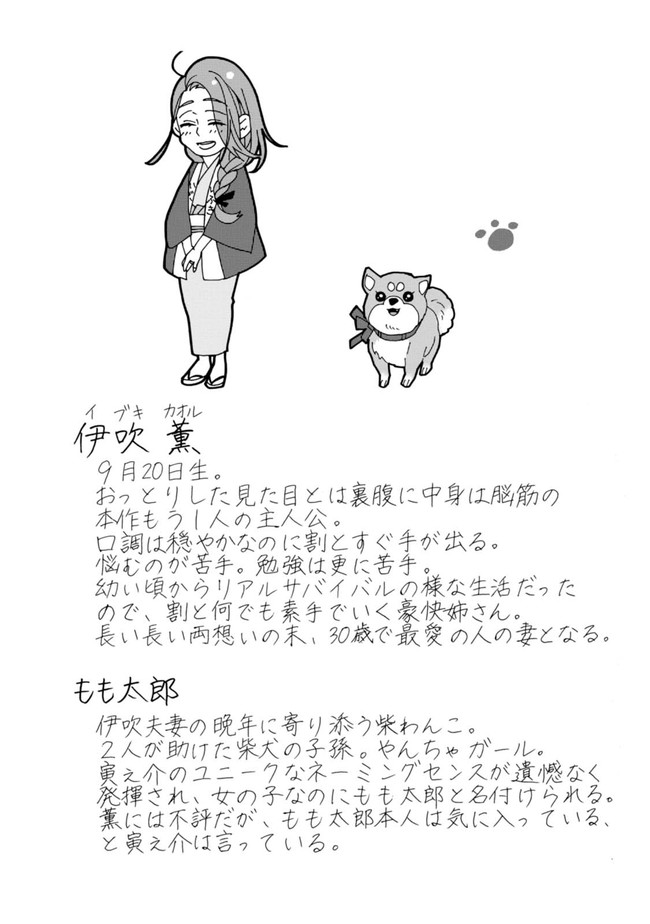 イブキ カオル
伊吹 薫
9月20日生。
おっとりした見た目とは裏腹に中身は脳筋の
本作もう1人の主人公。
口調は穏やかなのに割とすぐ手が出る。
悩むのが苦手。勉強は更に苦手。
幼い頃からリアルサバイバルの様な生活だった
ので、割と何でも素手でいく豪快姉さん。
長い長い両想いの末、30歳で最愛の人の妻となる。
もも太郎
伊吹夫妻の晩年に寄り添う柴わんこ。
2人が助けた柴犬の子孫。やんちゃガール。
寅之介のユニークなネーミングセンスが遺憾なく
発揮され、女の子なのにもも太郎と名付けられる。
薫には不評だが、もも太郎本人は気に入っている、
と寅之介は言っている。